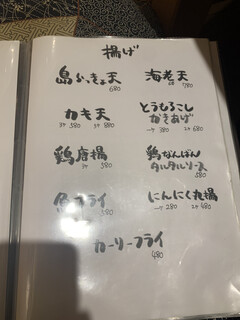 揚げ
島らっきょ天
680
海老天
2P 780
カキ天
3P 580 5P 880
とうもろこし
かきあげ
一ケ 380 2ケ 680
鶏唐揚
3ケ 380 5ケ 580
鶏なんばん
タルタルソース
580
魚フライ
580
にんにく丸揚
一ケ 280 2ケ 480
カーリーフライ
480